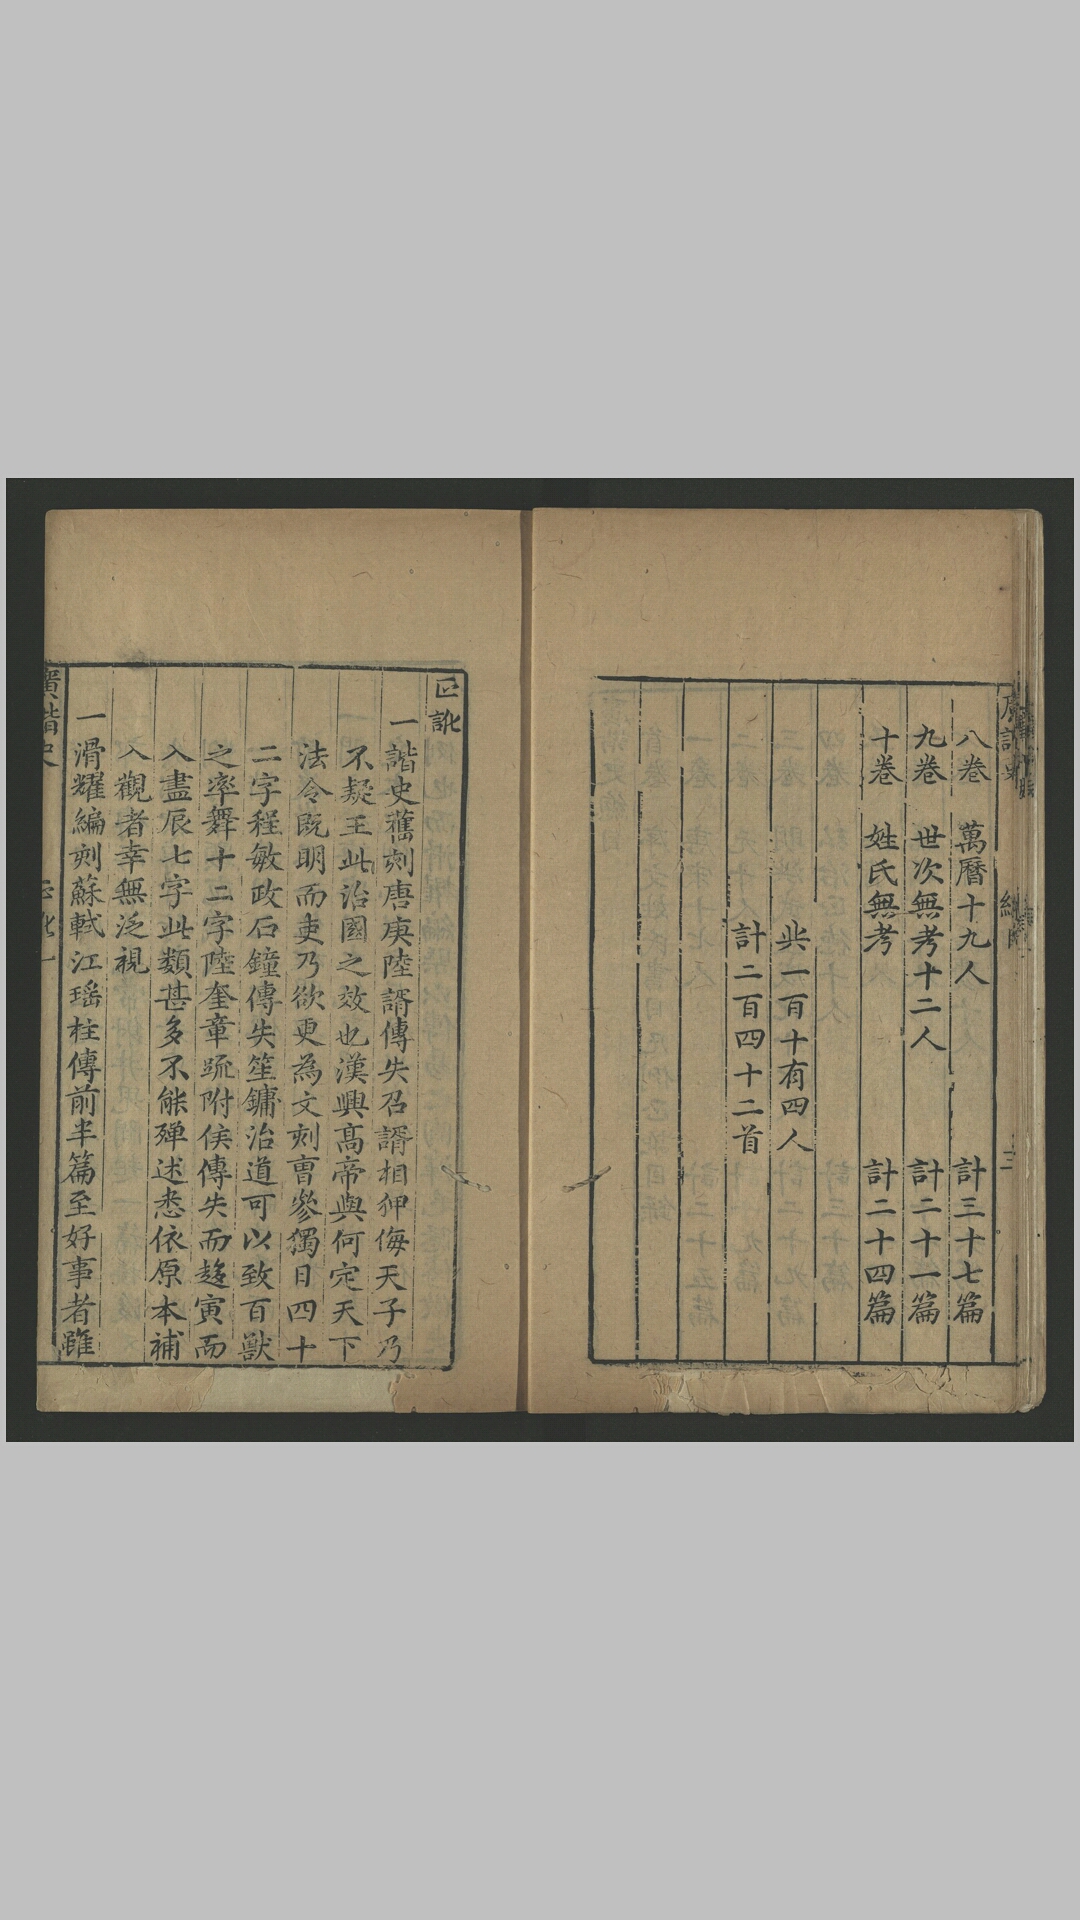 八卷　萬曆十九人　計三十七篇
九卷　世次無考十二人　計二十一篇
十卷　姓氏無考　計二十四篇
此一百十有四人
計二百四十二首
正訛
一諧史舊刻唐庚陸諝傳失召諝相狎侮天子乃
不疑王此治國之效也漢興高帝與何定天下
法令既明而吏乃欲更為文刻曺參獨日四十
二字程敏政石鐘傳失笙鏞治道可以致百獸
之率舞十二字陸奎章䟽附侯傳失而趍寅而
入盡辰七字此類甚多不能殫述悉依原本補
入觀者幸無泛視
一滑耀編刻蘇軾江瑶柱傳前半篇至好事者雖
廣諧史
正訛一